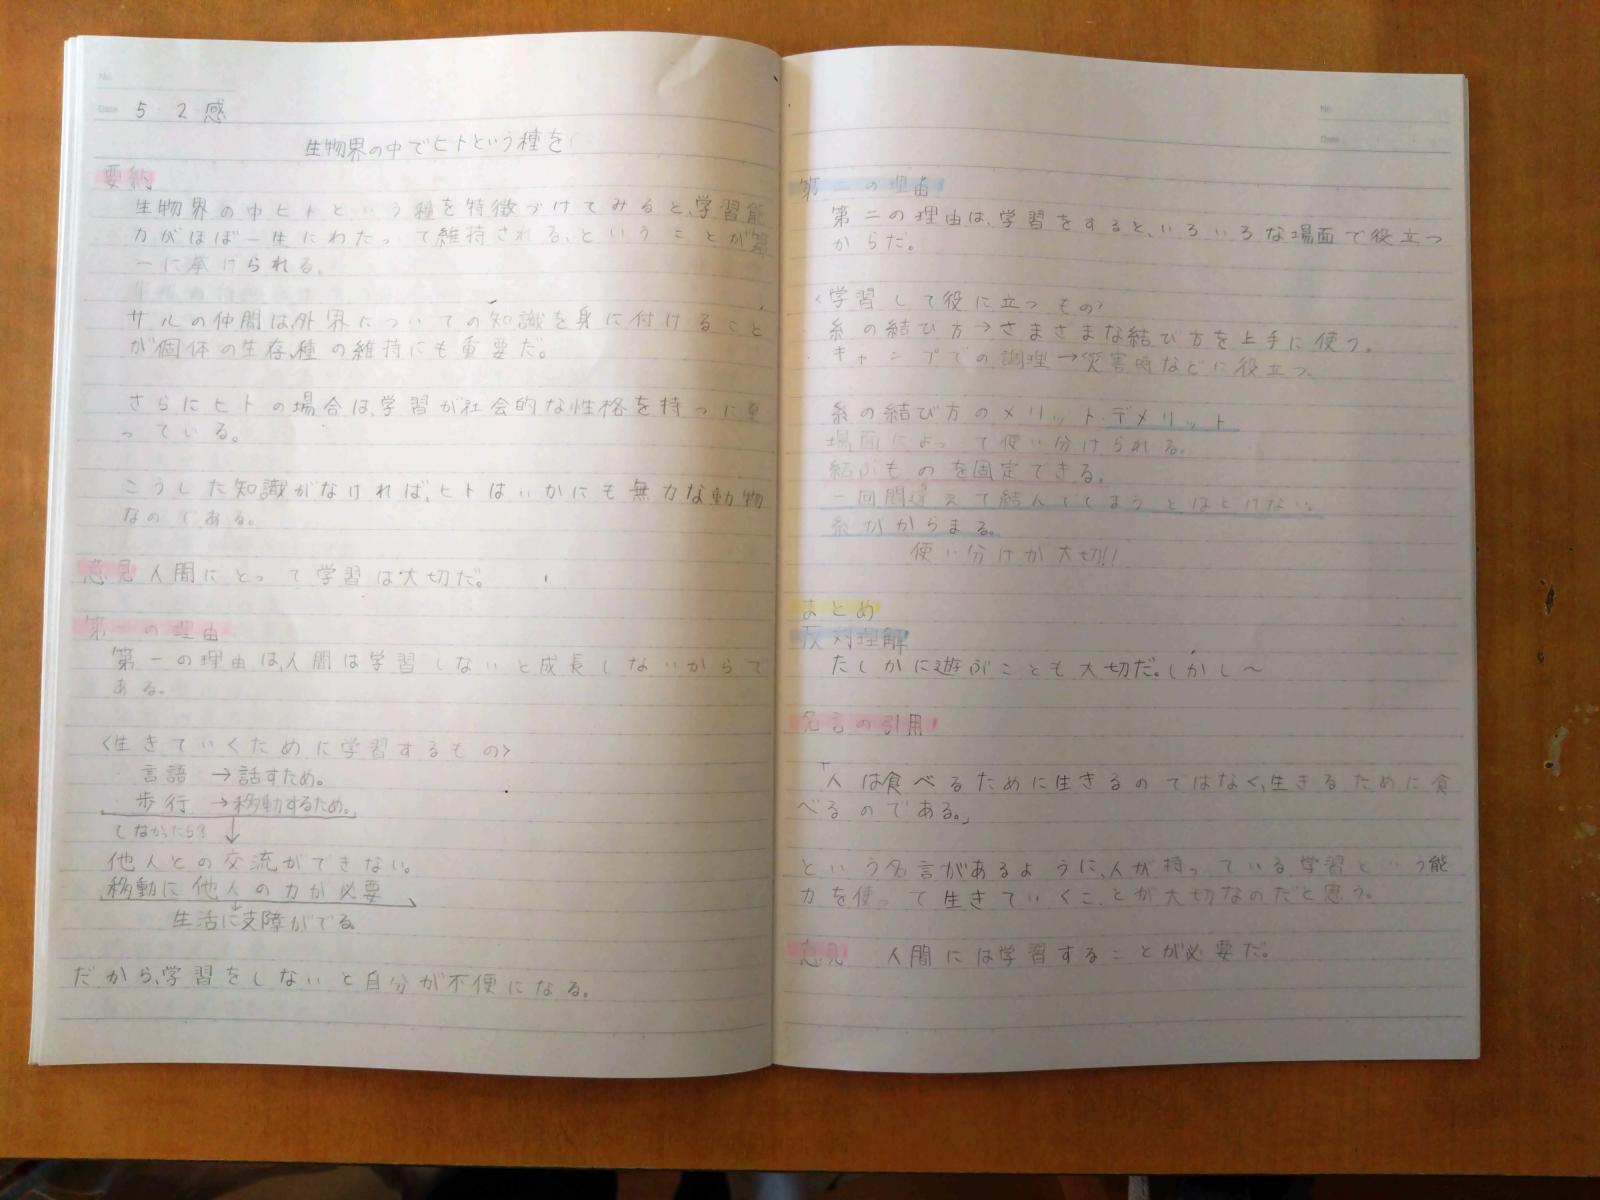 No.
Date 5 2 感
生物界の中でヒトという種を
要約
生物界の中ヒトという種を特徴づけてみると、学習能
力がほぼ一生にわたって維持される、ということが第
一に挙げられる。
サルの仲間は、外界についての知識を身に付けること
が個体の生存、種の維持にも重要だ。
さらにヒトの場合は、学習が社会的な性格を持つに至
っている。
こうした知識がなければ、ヒトはいかにも無力な動物
なのである。
意見 人間にとって学習は大切だ。
第一の理由
第一の理由は、人間は学習しないと成長しないからで
ある。
〈生きていくために学習するもの〉
言語 →話すため。
歩行 →移動するため。
しなかったら?
他人との交流ができない。
移動に他人の力が必要
生活に支障がでる
だから、学習をしないと自分が不便になる。
No.
Date
第二の理由
第二の理由は、学習をすると、いろいろな場面で役立つ
からだ。
〈学習して役に立つもの〉
糸の結び方→さまざまな結び方を上手に使う。
キャンプでの調理→災害時などに役立つ。
糸の結び方のメリット・デメリット
場面によって使い分けられる。
結ぶものを固定できる。
一回間違えて結んでしまうとほどけない。
糸がからまる。
使い分けが大切!!
まとめ
反対理解
たしかに遊ぶことも大切だ。しかし〜
名言の引用
「人は食べるために生きるのではなく、生きるために食
べるのである。」
という名言があるように、人が持っている学習という能
力を使って生きていくことが大切なのだと思う。
意見 人間には学習することが必要だ。